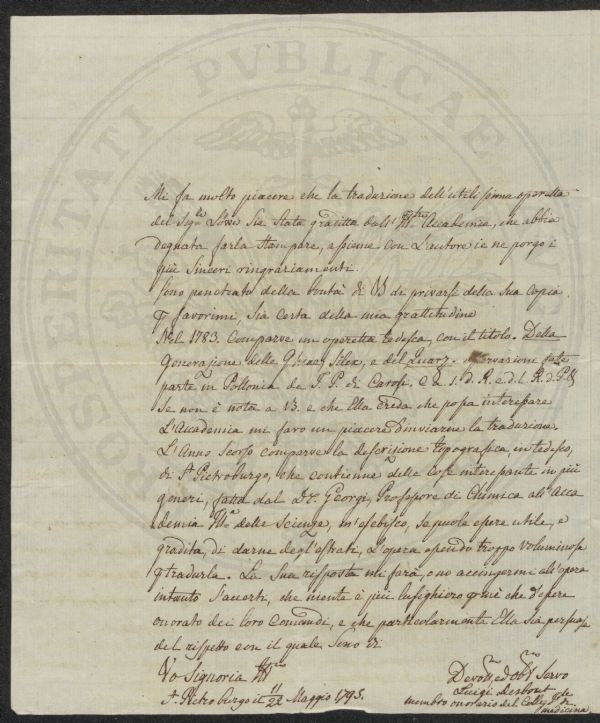 PVBLICAE
HENITATI
Mi fa molto piacere che la traduzione dell'utilissima operetta
del Sig.re Lowi sia stata gradita dall' Ill.tra Accademia, che abbia
degnata farla stampare, assieme con L'autore ie ne porgo i
più sinceri ringraziamenti.
Sono penetrato della bontà di VS di privarsi della sua copia
p favorirmi, sia certa della mia grattitudine
Nel 1783. Comparve un operetta tedesca, con il titolo. Della
Generazione delle Silex, e del Quarz. osservazioni fatte
parte in Pollonia da J. P. di Carosi. C. d. R. e. d. L.
Se non è nota a VS. e che Ella creda che possa interessare
L'Accademia mi farò un piacere d'inviarne la traduzione.
L'Anno scorso comparve la descrizione topografica, in tedesco,
di S.t Pietroburgo, che contienne delle Cose interessante in più
generi, fatta dal Dr. Georgi, Professore di Chimica all'Acca
demia Ill.e delle Scienze, m'esebisco, se puole essere utile, e
gradita, di darne degl'estrati, L'opera essendo troppo voluminosa
p tradurla. La sua risposta mi farà, o no accingermi all'opera
intanto s'accerti, che niente è più lusinghiero p mè che d'essere
onorato dei loro comandi, e che particolarmente Ella sia persuasa
del rispetto con il quale sono di
Vo Signoria Ill.ma
S.t Pietroburgo il 11/22 Maggio 1795.
Devot.mo, ed Obb.mo Servo
Luigi Desbout
membro onorario del Colleg. di
medicina